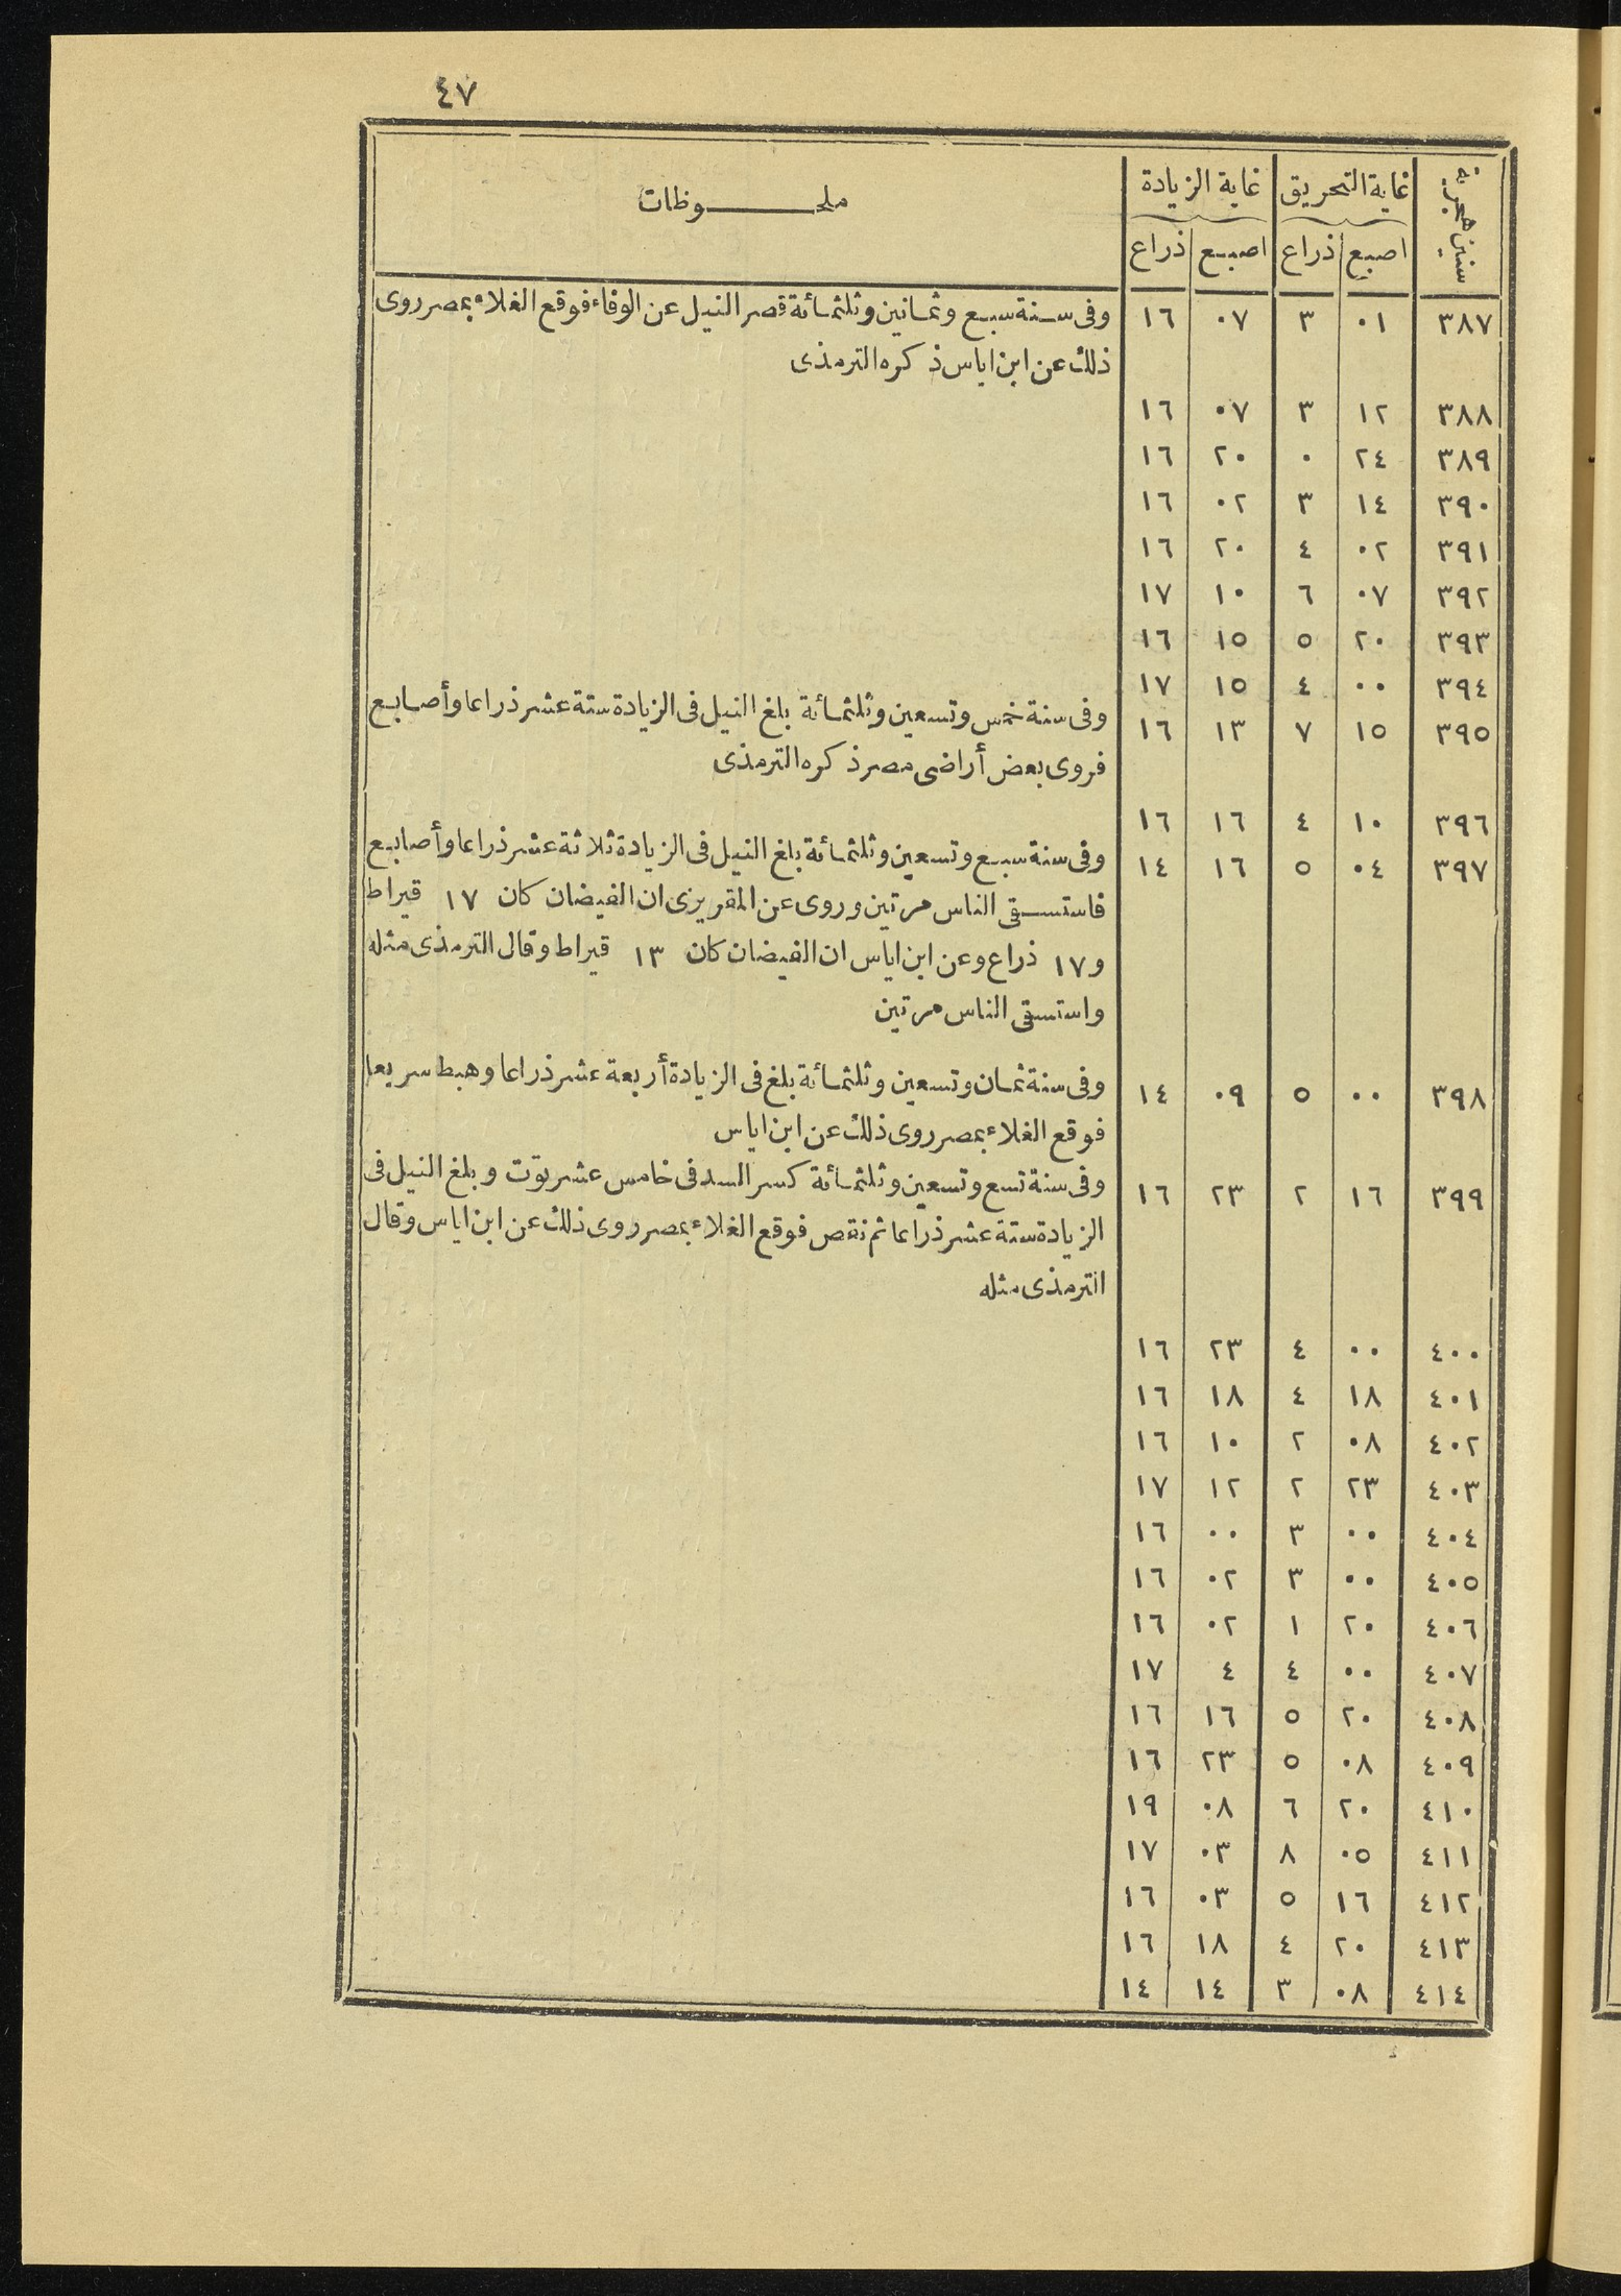 ٤٧
سنين هجرية | غاية التحريق | غاية الزيادة | ملحـــــوظات
اصبع | ذراع | اصبع | ذراع
٣٨٧ | ٠١ | ٣ | ٠٧ | ١٦ | وفى سنة سبع وثمانين وثلثمائة قصر النيل عن الوفاء فوقع الغلاء بمصر روى
ذلك عن ابن اياس ذكره الترمذى
٣٨٨ | ١٢ | ٣ | ٠٧ | ١٦
٣٨٩ | ٢٤ | ٠ | ٢٠ | ١٦
٣٩٠ | ١٤ | ٣ | ٠٢ | ١٦
٣٩١ | ٠٢ | ٤ | ٢٠ | ١٦
٣٩٢ | ٠٧ | ٦ | ١٠ | ١٧
٣٩٣ | ٢٠ | ٥ | ١٥ | ١٦
٣٩٤ | ٠٠ | ٤ | ١٥ | ١٧
٣٩٥ | ١٥ | ٧ | ١٣ | ١٦ | وفى سنة خمس وتسعين وثلثمائة بلغ النيل فى الزيادة ستة عشر ذراعا وأصابع
فروى بعض أراضى مصر ذكره الترمذى
٣٩٦ | ١٠ | ٤ | ١٦ | ١٦
٣٩٧ | ٠٤ | ٥ | ١٦ | ١٤ | وفى سنة سبع وتسعين وثلثمائة بلغ النيل فى الزيادة ثلاثة عشر ذراعا وأصابع
فاستسقى الناس مرتين وروى عن المقريزى ان الفيضان كان ١٧ قيراط
و١٧ ذراع وعن ابن اياس ان الفيضان كان ١٣ قيراط وقال الترمذى مثله
واستسقى الناس مرتين
٣٩٨ | ٠٠ | ٥ | ٠٩ | ١٤ | وفى سنة ثمان وتسعين وثلثمائة بلغ فى الزيادة أربعة عشر ذراعا وهبط سريعا
فوقع الغلاء بمصر روى ذلك عن ابن اياس
٣٩٩ | ١٦ | ٢ | ٢٣ | ١٦ | وفى سنة تسع وتسعين وثلثمائة كسر السد فى خامس عشر توت وبلغ النيل فى
الزيادة ستة عشر ذراعا ثم نقص فوقع الغلاء بمصر روى ذلك عن ابن اياس وقال
الترمذى مثله
٤٠٠ | ٠٠ | ٤ | ٢٣ | ١٦
٤٠١ | ١٨ | ٤ | ١٨ | ١٦
٤٠٢ | ٠٨ | ٢ | ١٠ | ١٦
٤٠٣ | ٢٣ | ٢ | ١٢ | ١٧
٤٠٤ | ٠٠ | ٣ | ٠٠ | ١٦
٤٠٥ | ٠٠ | ٣ | ٠٢ | ١٦
٤٠٦ | ٢٠ | ١ | ٠٢ | ١٦
٤٠٧ | ٠٠ | ٤ | ٤ | ١٧
٤٠٨ | ٢٠ | ٥ | ١٦ | ١٦
٤٠٩ | ٠٨ | ٥ | ٢٣ | ١٦
٤١٠ | ٢٠ | ٦ | ٠٨ | ١٩
٤١١ | ٠٥ | ٨ | ٠٣ | ١٧
٤١٢ | ١٦ | ٥ | ٠٣ | ١٦
٤١٣ | ٢٠ | ٤ | ١٨ | ١٦
٤١٤ | ٠٨ | ٣ | ١٤ | ١٤